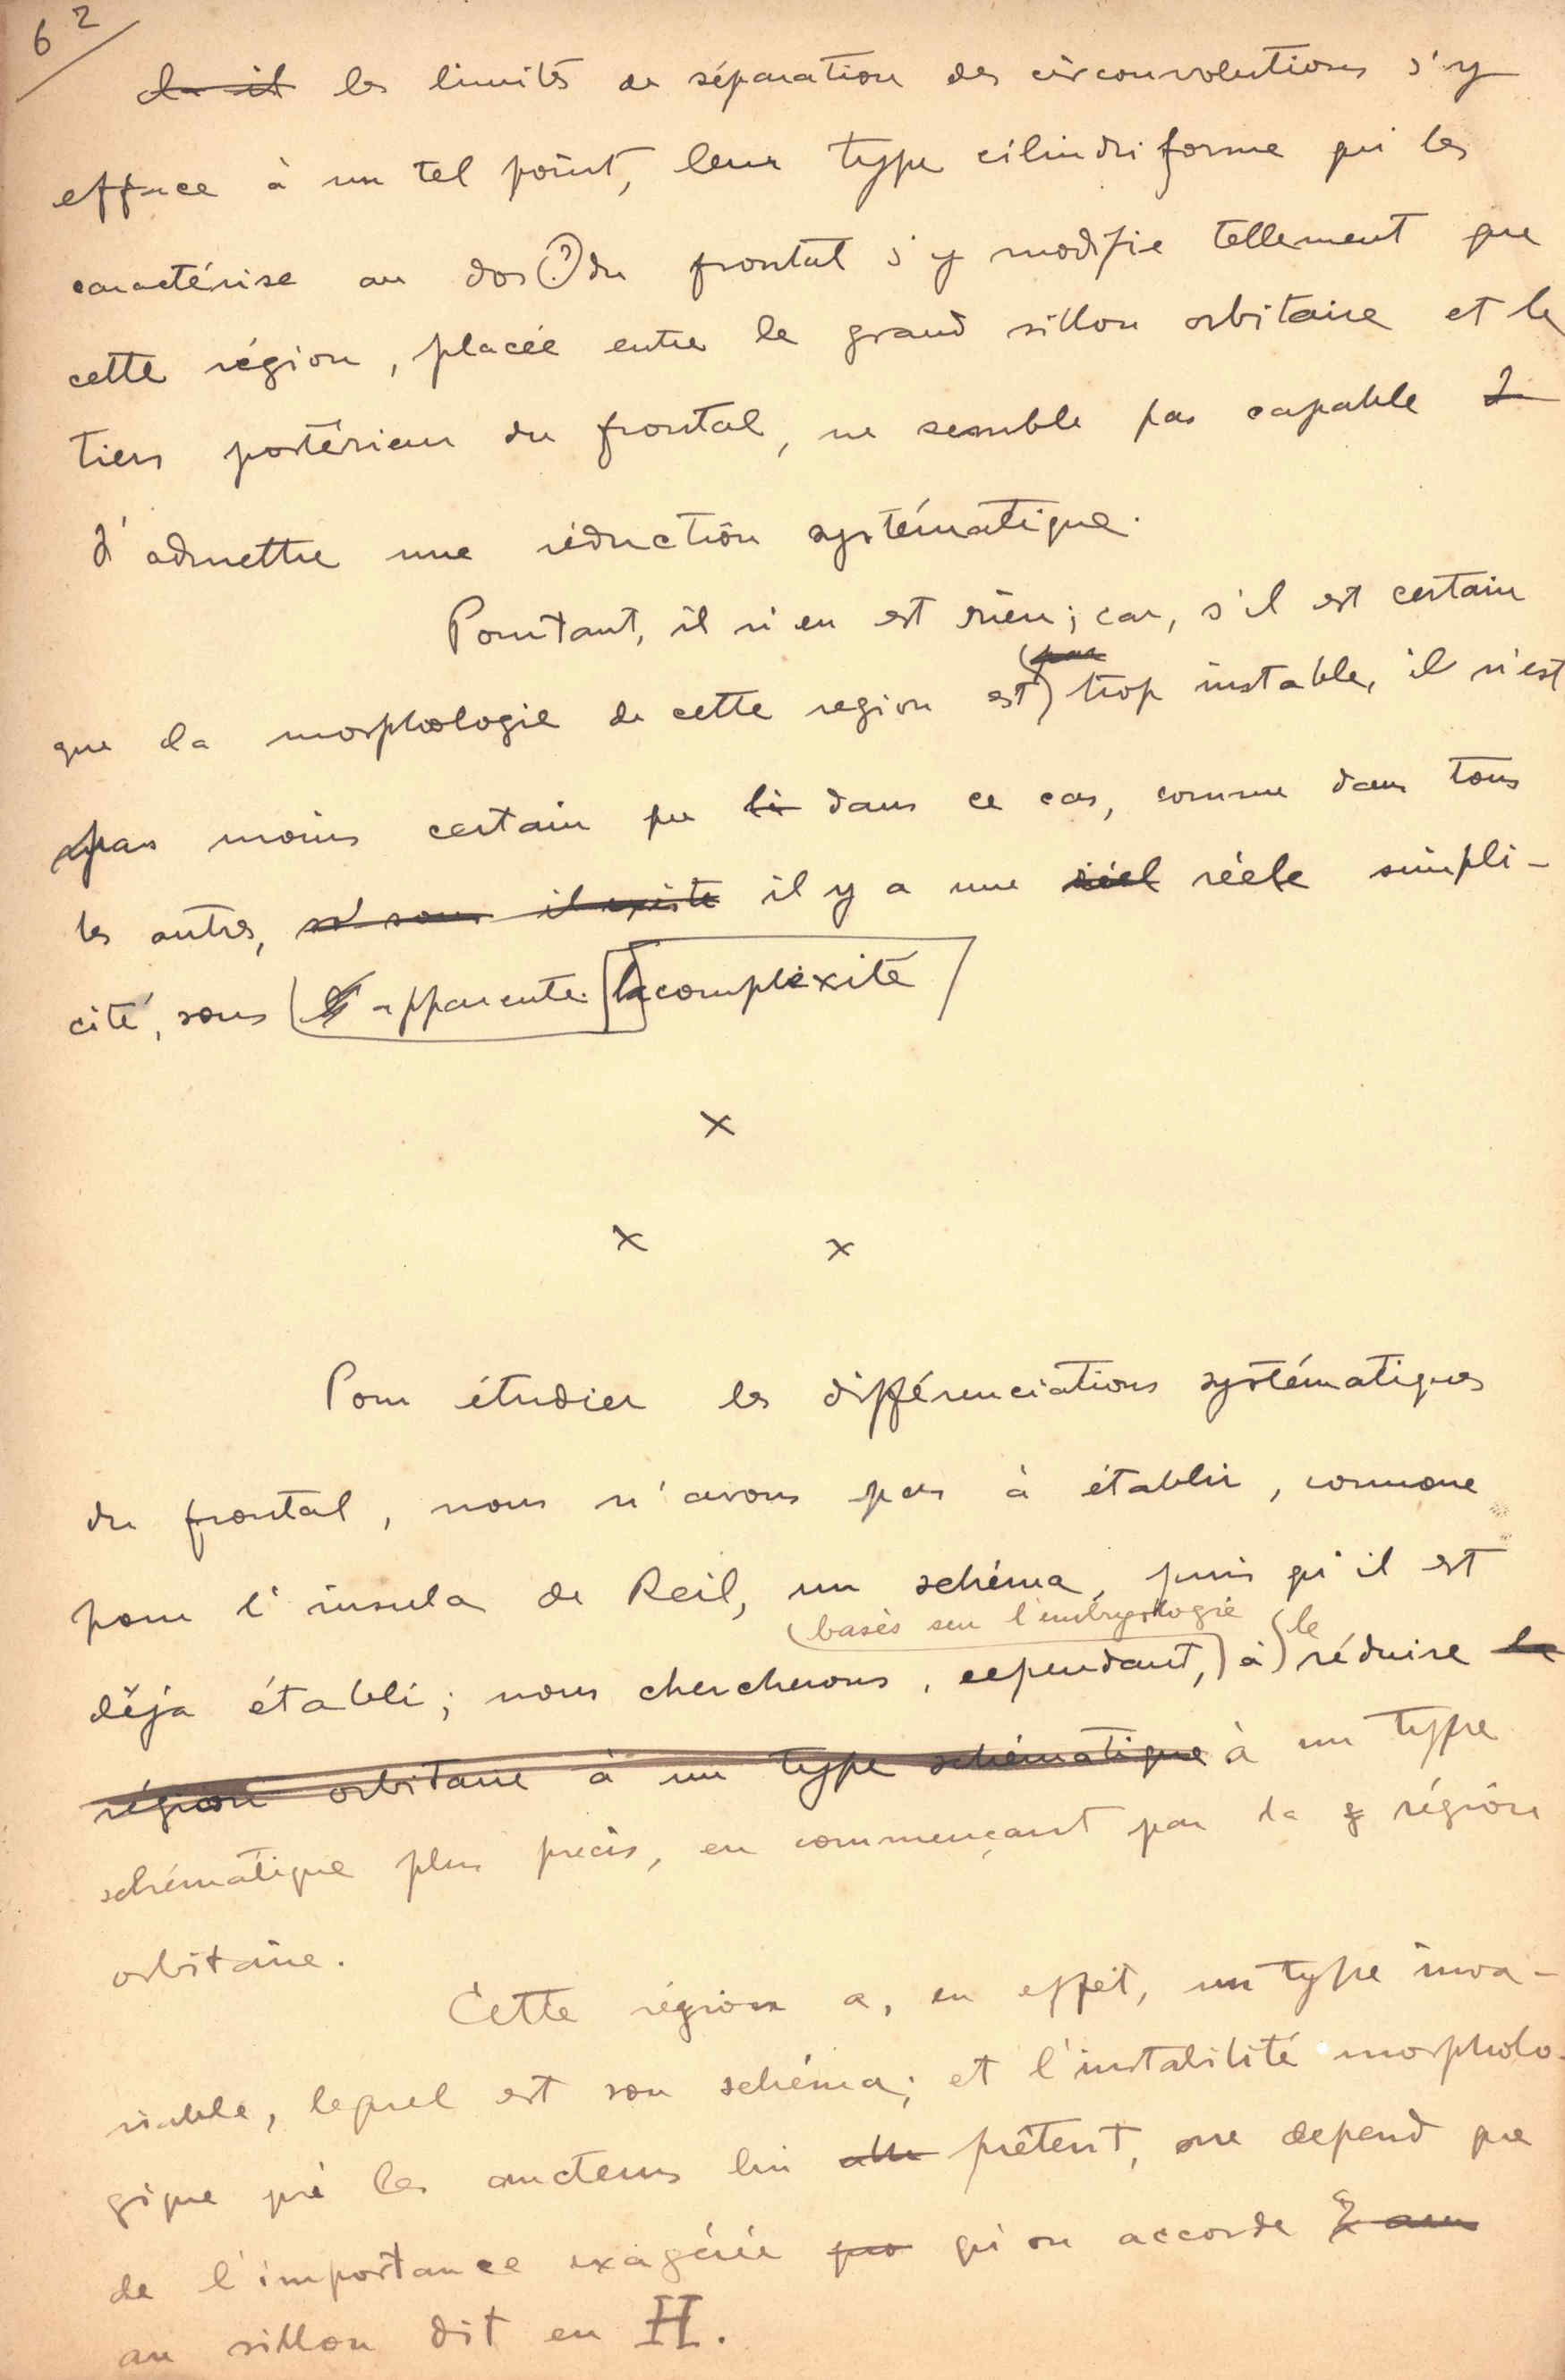 62
les limites de séparation des circonvolutions s'y
efface à un tel point, leur type cilindriforme qui les
caractérise au dos (?) du frontal s'y modifie tellement que
cette région, placée entre le grand sillon orbitaire et le
tiers postérieur du frontal, ne semble pas capable d
d'admettre une réduction systématique.
Pourtant, il n'en est rien; car, s'il est certain
par
que la morphologie de cette region est trop instable, il n'est
pas moins certain que dans ce cas, comme dans tous
les autres, il existe il y a une réel réele simpli-
cité, sous apparente la complexité
x
x x
Pour étudier les différenciations systématiques
du frontal, nous n'avons pas à établir, comme
pour l'insula de Reil, un schéma, puis qu'il est
basés sur l'embryologie le
déja établi; nous chercherons, cependant, à réduire la
région orbitaire à un type schématique à un type
schématique plus précis, en commençant par la région
orbitaire.
Cette région a, en effet, un type inva-
riable, lequel est son schéma; et l'instabilité morpholo-
gique que les aucteurs lui prêtent, ne depend que
de l'importance exagérée qu'on accorde
au sillon dit en H.